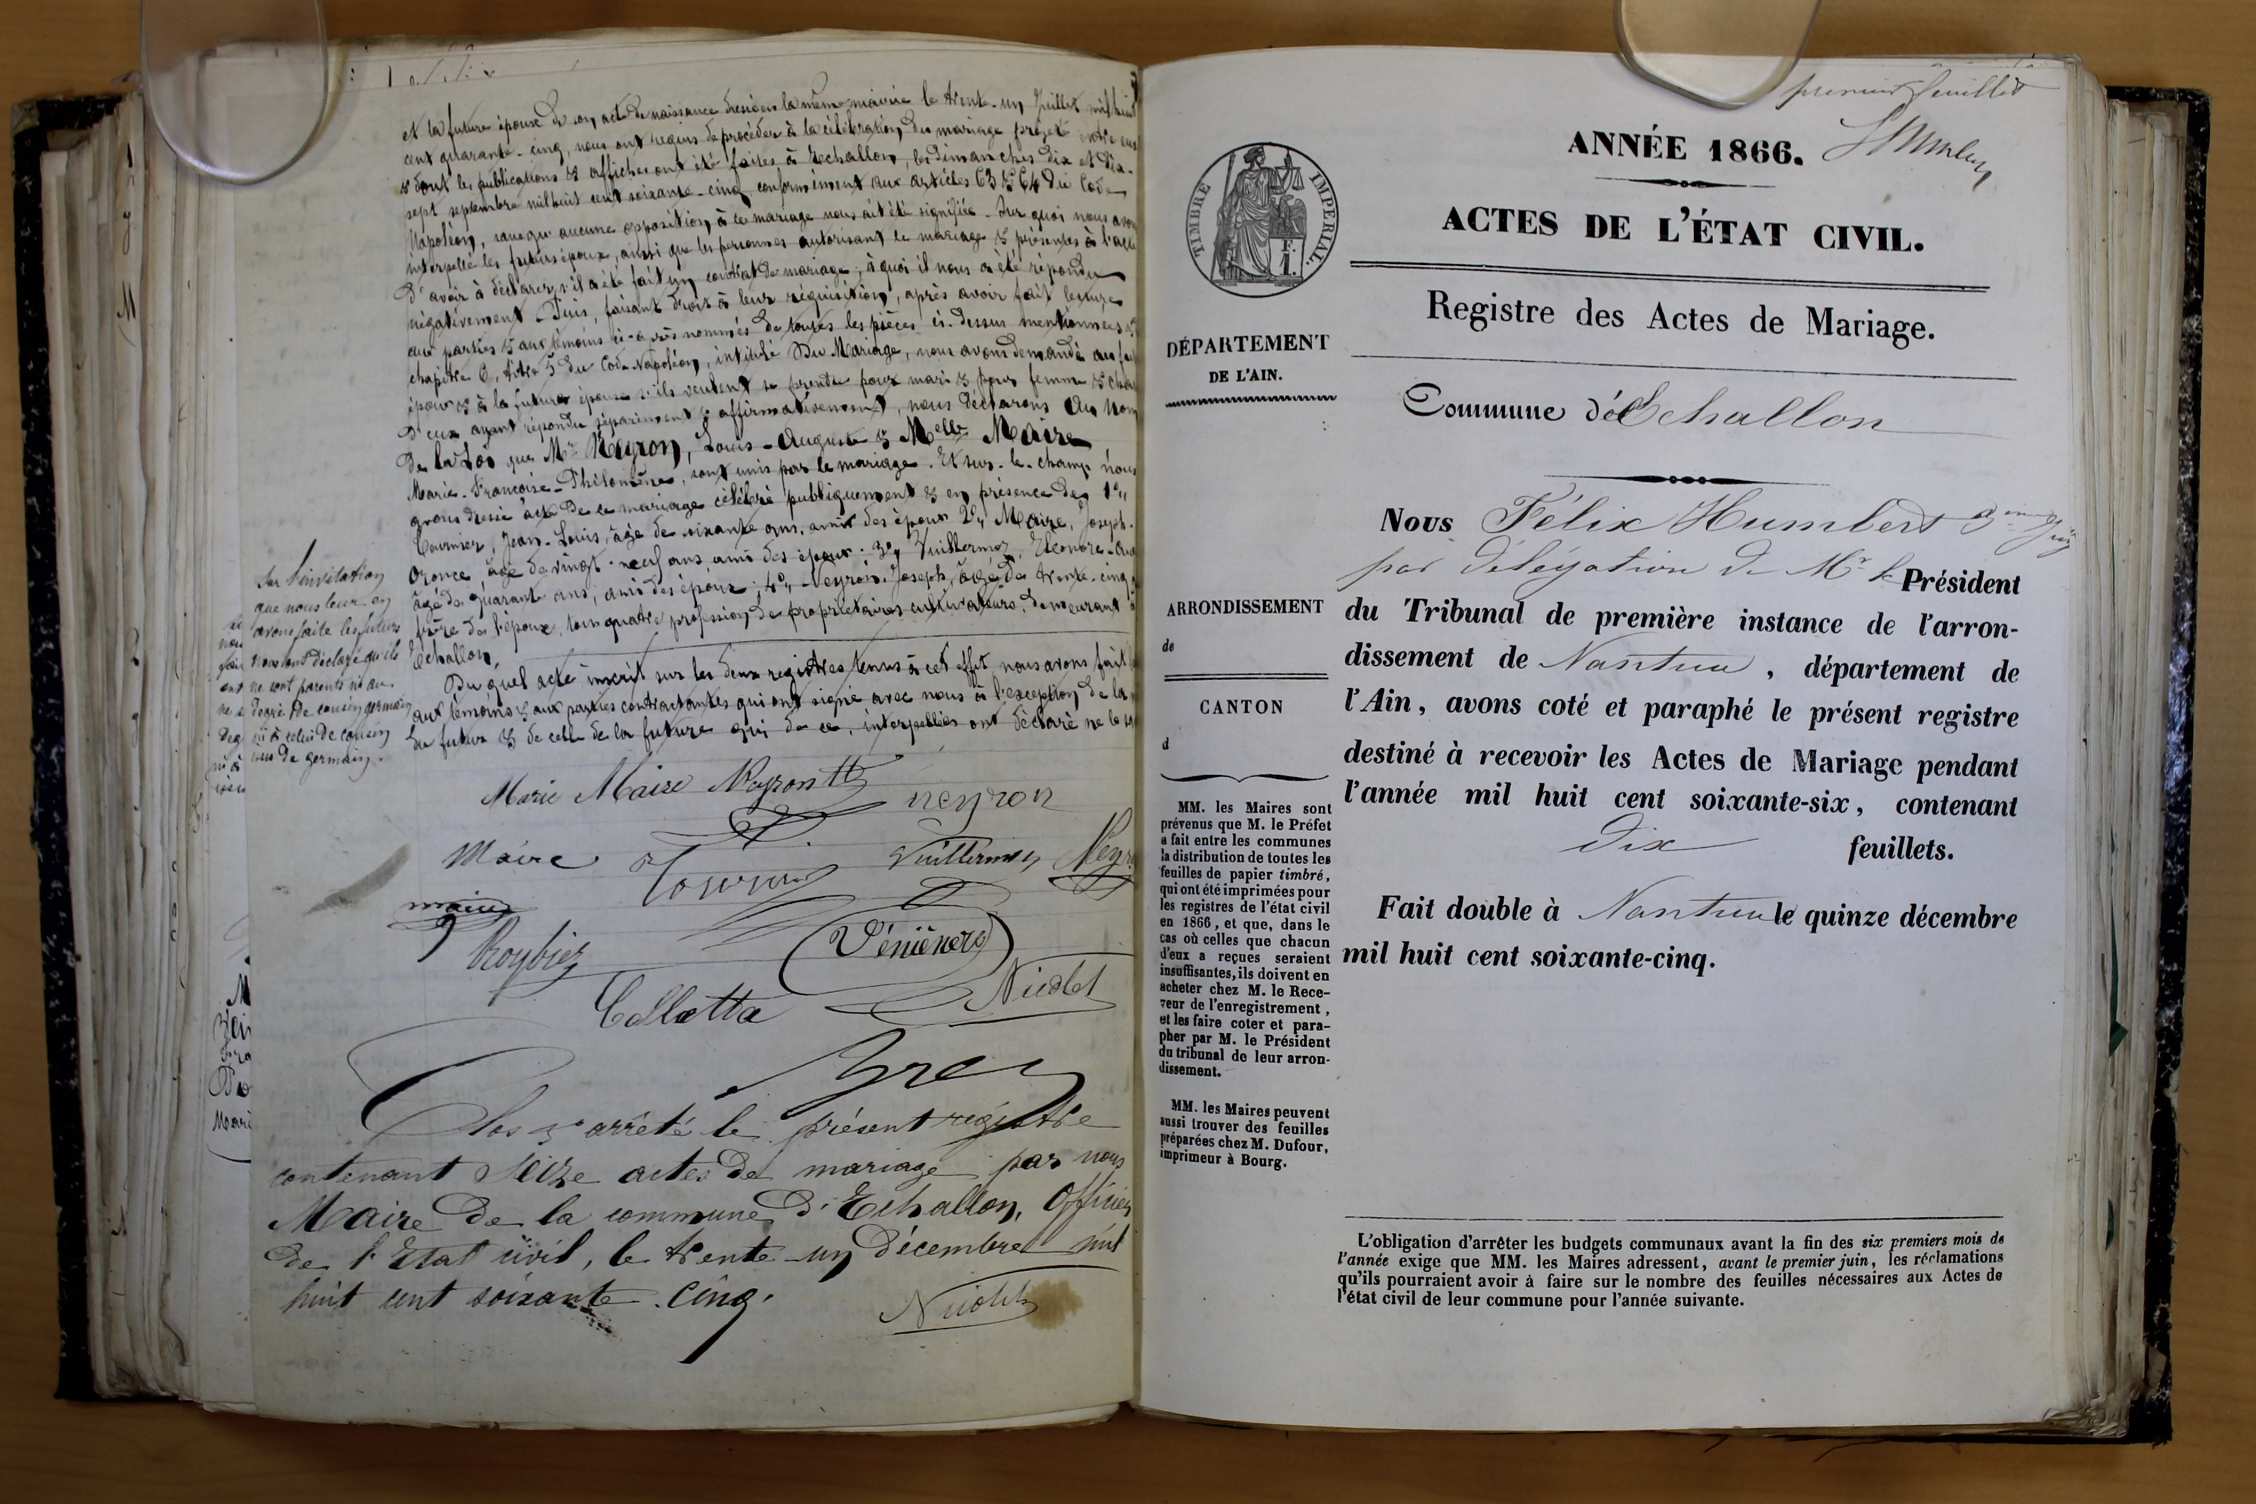 et la future épouse de son acte de naissance dressé en la même mairie le trente-un juillet mil huit
cent quarante-cinq, nous ont requis de procéder à la célébration du mariage projeté entre eux
& dont les publications & affiches ont été faites à Echallon, les dimanches dix et dix-
sept septembre mil huit cent soixante-cinq conformément aux articles 63 & 64 du Code
Napoléon, sans qu'aucune opposition à ce mariage nous ait été signifiée. Sur quoi nous avons
interpellé les futurs époux, ainsi que les personnes autorisant le mariage & présentes à l'acte
d'avoir à déclarer s'il a été fait un contrat de mariage, à quoi il nous a été répondu
négativement. Puis, faisant droit à leur réquisition, après avoir fait lecture
aux parties & aux témoins ci-après nommés de toutes les pièces ci-dessus mentionnées &
chapitre 6, titre 5 du Code Napoléon, intitulé Du Mariage, nous avons demandé au futur
époux & à la future épouse s'ils veulent se prendre pour mari & pour femme & chacun
d'eux ayant répondu séparément & affirmativement, nous déclarons au nom
De la Loi que Mr Neyron, Louis-Auguste & Melle Maire
Marie-Françoise-Philomène, sont unis par le mariage. Et sur-le-champ nous
avons dressé acte de ce mariage célébré publiquement & en présence de 1°,,
Tournier, Jean-Louis, âgé de soixante ans, ami des époux 2°,, Maire, Joseph-
Oronce, âgé de vingt-neuf ans, ami des époux; 3°,, Vuillermoz, Eléonore-
âgé de quarante ans, ami des époux; 4°,, Neyron Joseph, âgé de trente-cinq
frère de l'époux, tous quatre profession de propriétaires cultivateurs, demeurant à
Echallon.
Du quel acte inscrit sur les deux registres tenus à cet effet nous avons fait
aux témoins & aux parties contractantes qui ont signé avec nous à l'exception de la
du futur & de celle de la future qui de ce, interpellées ont déclaré ne le
Sur l'invitation
que nous leur en
avons faite les futurs
nous ont déclaré qu'ils
ne sont parents ni au
degré de cousin germain
ni à celui de cousin
issu de germain.
Marie Maire Neyron
neyron
Maire
Vuillermoz
maire
Nicolet
Clos & arrêté le présent registre
contenant seize actes de mariage par nous
Maire de la commune d'Echallon, Officier
de l'Etat civil, le trente-un décembre mil
huit cent soixante-cinq.
Nicolet
premier feuillet
ANNÉE 1866.
ACTES DE L'ÉTAT CIVIL.
TIMBRE IMPERIAL.
Registre des Actes de Mariage.
DÉPARTEMENT
DE L'AIN.
Commune d'Echallon
ARRONDISSEMENT
de
CANTON
d
MM. les Maires sont
prévenus que M. le Préfet
a fait entre les communes
la distribution de toutes les
feuilles de papier timbré,
qui ont été imprimées pour
les registres de l'état civil
en 1866, et que, dans le
cas où celles que chacun
d'eux a reçues seraient
insuffisantes, ils doivent en
acheter chez M. le Rece-
veur de l'enregistrement,
et les faire coter et para-
pher par M. le Président
du tribunal de leur arron-
dissement.
MM. les Maires peuvent
aussi trouver des feuilles
préparées chez M. Dufour,
imprimeur à Bourg.
Nous Félix Humbert
par délégation de Mr le Président
du Tribunal de première instance de l'arron-
dissement de Nantua, département de
l'Ain, avons coté et paraphé le présent registre
destiné à recevoir les Actes de Mariage pendant
l'année mil huit cent soixante-six, contenant
dix feuillets.
Fait double à Nantua le quinze décembre
mil huit cent soixante-cinq.
L'obligation d'arrêter les budgets communaux avant la fin des six premiers mois de
l'année exige que MM. les Maires adressent, avant le premier juin, les réclamations
qu'ils pourraient avoir à faire sur le nombre des feuilles nécessaires aux Actes de
l'état civil de leur commune pour l'année suivante.